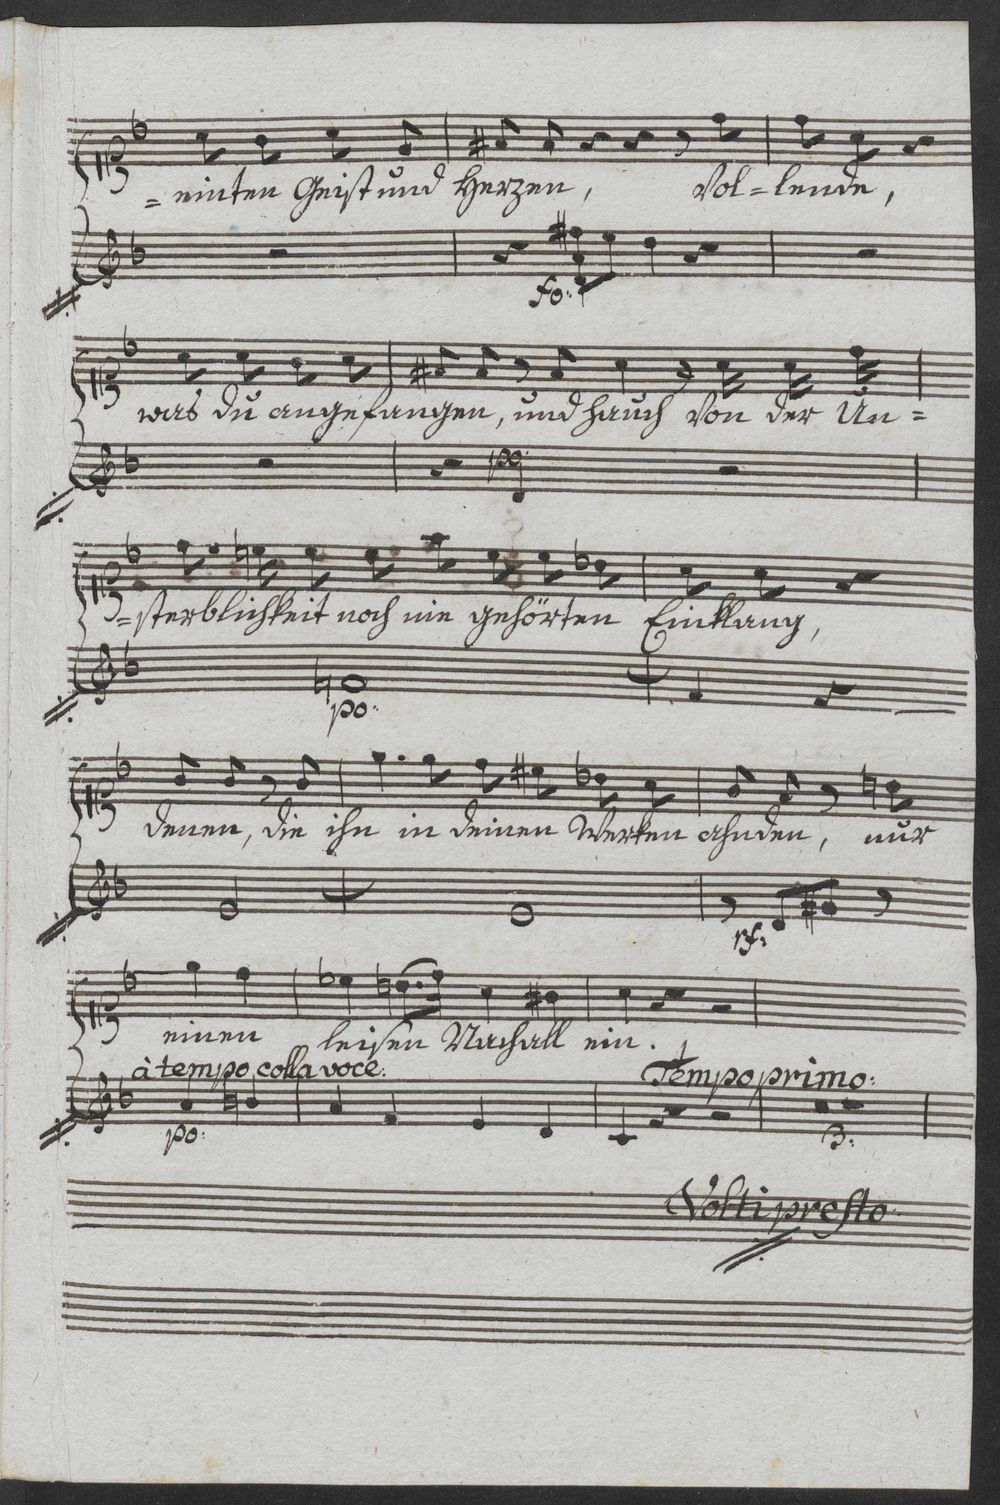 = einten Geist und Herzen, Vol=lende,
fo:
was du angefangen, und hauch von der Un=
po:
=sterblichkeit noch nie gehörten Einklang,
po:
denen, die ihn in deinen Werken ahnden, nur
rf:
einen leisen Nachall ein.
à tempo, colla voce: Tempo primo:
po: 3:
Volti presto